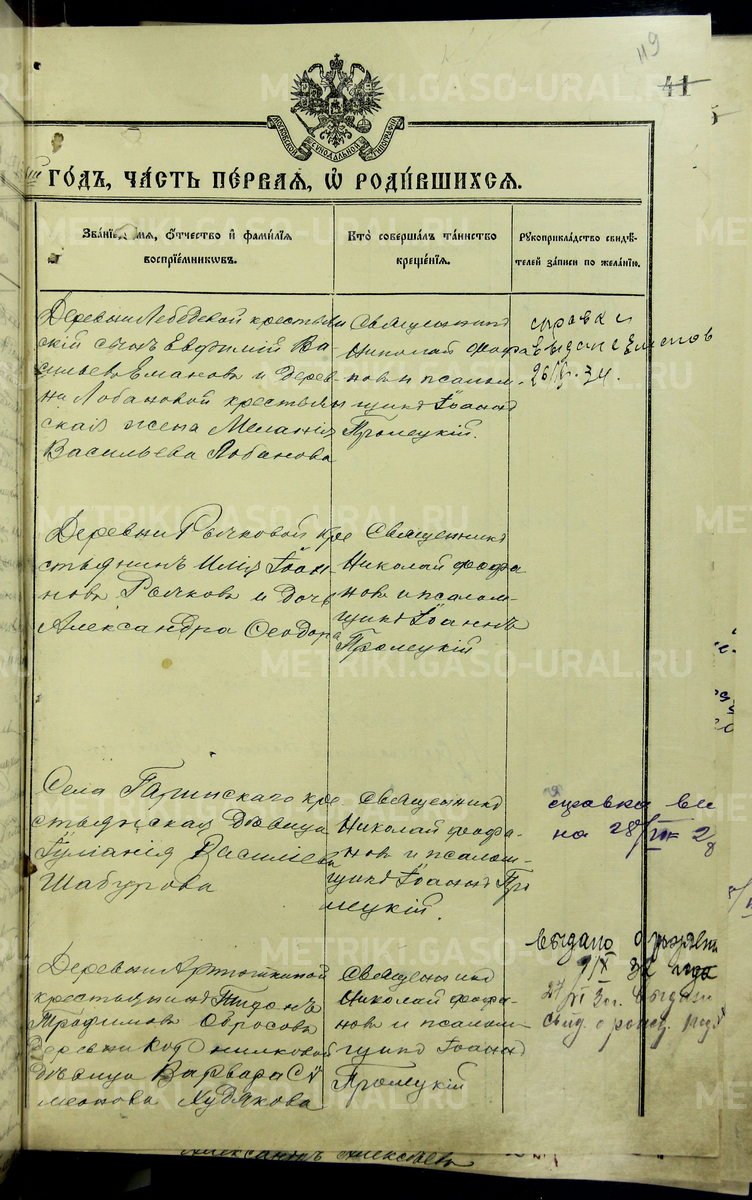 119
41
МОСКОВСКОЙ СѴНОДАЛЬНОЙ ТИПОГРАФІИ
ГОДЪ, ЧАСТЬ ПЕРВАЯ, Ѡ РОДИВШИХСЯ.
Званіе, имя, отчество и фамилія воспріемниковъ.
Кто совершалъ таинство крещенія.
Рукоприкладство свидѣтелей записи по желанію.
Деревни Лебедской крестьян
скій сынъ Евфимій Ва
сильевъ Емановъ и дерев
ни Лобановой крестьян
ская жена Меланія
Васильева Лобанова
Священникъ
Николай Феофа
новъ и псалом-
щикъ Іоаннъ
Пролецкій.
справка
выдана
26/ 34.
Деревни Рычковой кре
стьянинъ Илія Іоан-
новъ Рычковъ и дочь
Александра Ѳеодора
Священникъ
Николай Феофа
новъ и псалом-
щикъ Іоаннъ
Пролецкій
Села Гаринскаго кре
стьянская дѣвица
Іуліанія Василіева
Шабурова
Священникъ
Николай Феофа-
новъ и псалом-
щикъ Іоаннъ Про
лецкій.
справка вы
на 28/VIII 28
Деревни Артюшкиной
крестьянинъ
Трофимовъ Обросовъ
деревни Котниковой
дѣвица Варвара Си
меонова Худякова
Священникъ
Николай Феофа-
новъ и псалом-
щикъ Іоаннъ
Пролецкій
выдано о рожден
9/X 32 года
27/VI 3 г. выдано
свид. о рожд.
Алексѣева
METRIKI.GASO-URAL.RU